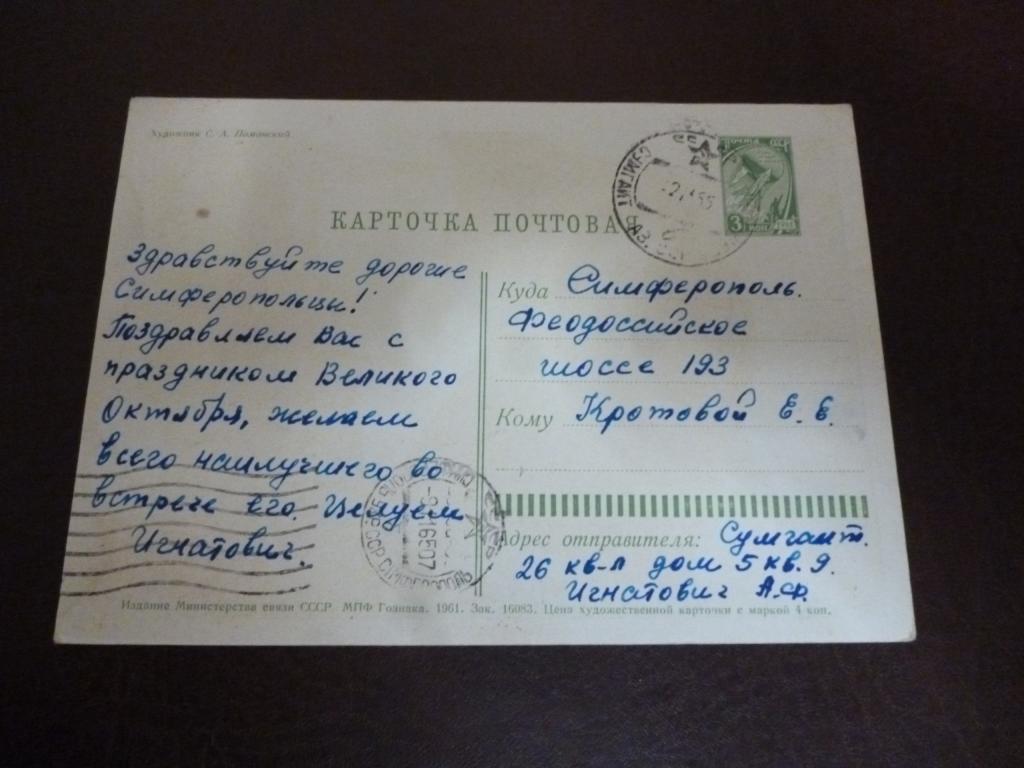 Художник С. А. Поманский
КАРТОЧКА ПОЧТОВАЯ
ПОЧТА СССР
3 КОП
1961
СУМГАИТ АЗ.
Здравствуйте дорогие
Симферопольцы!
Поздравляем Вас с
праздником Великого
Октября, желаем
всего наилучшего во
встрече его. Целуем
Игнатович.
Куда Симферополь.
Феодоссийское
шоссе 193
Кому Кротовой Е. Е.
СССР СИМФЕРОПОЛЬ
Адрес отправителя: Сумгаит.
26 кв-л дом 5 кв. 9.
Игнатович А.Ф.
Издание Министерства связи СССР. МПФ Гознака. 1961. Зак. 16083. Цена художественной карточки с маркой 4 коп.